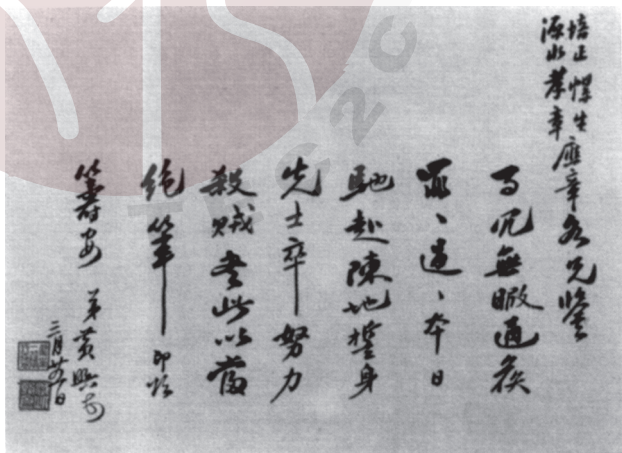 培正 生
源水 孝章 應章各兄鑒
事冗無暇通候
罪、過、本日
馳赴陳地誓身
先士卒努力
殺賊書此以當
絕筆即頌
籌安 弟黃興頓首
三月廿五日